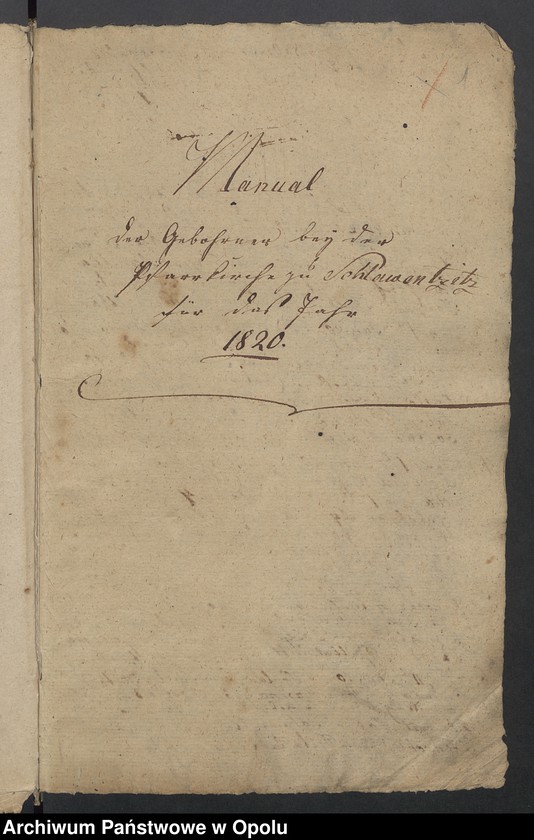 Manual
der Gebohrnen bey der
Pfarrkirche zu Schlawentzitz
für das Jahr
1820.
Archiwum Państwowe w Opolu